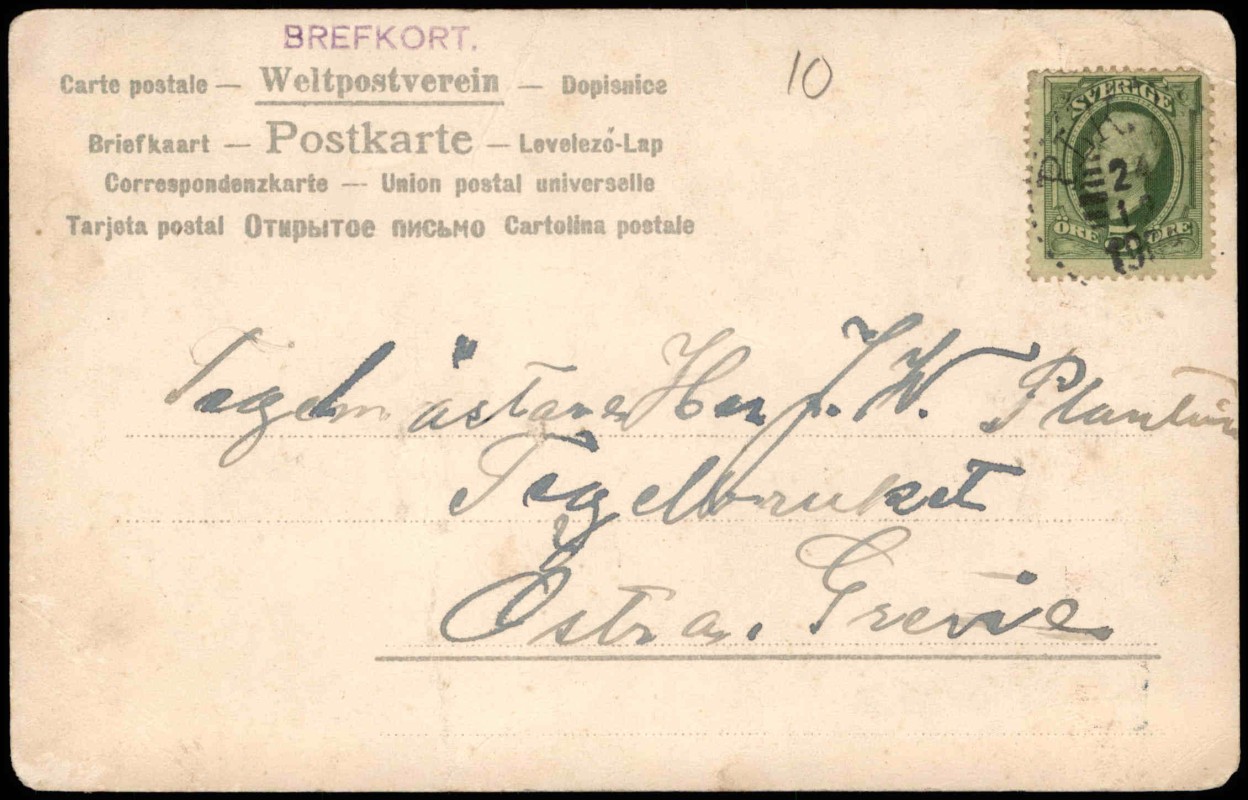 BREFKORT.
Carte postale — Weltpostverein — Dopisnice
10
Briefkaart — Postkarte — Levelező-Lap
Correspondenzkarte — Union postal universelle
Tarjeta postal Открытое письмо Cartolina postale
SVERIGE
24
ÖRE
Tegelmästaren Herr J. W. Plantin
Tegelbruket
Östra. Grevie